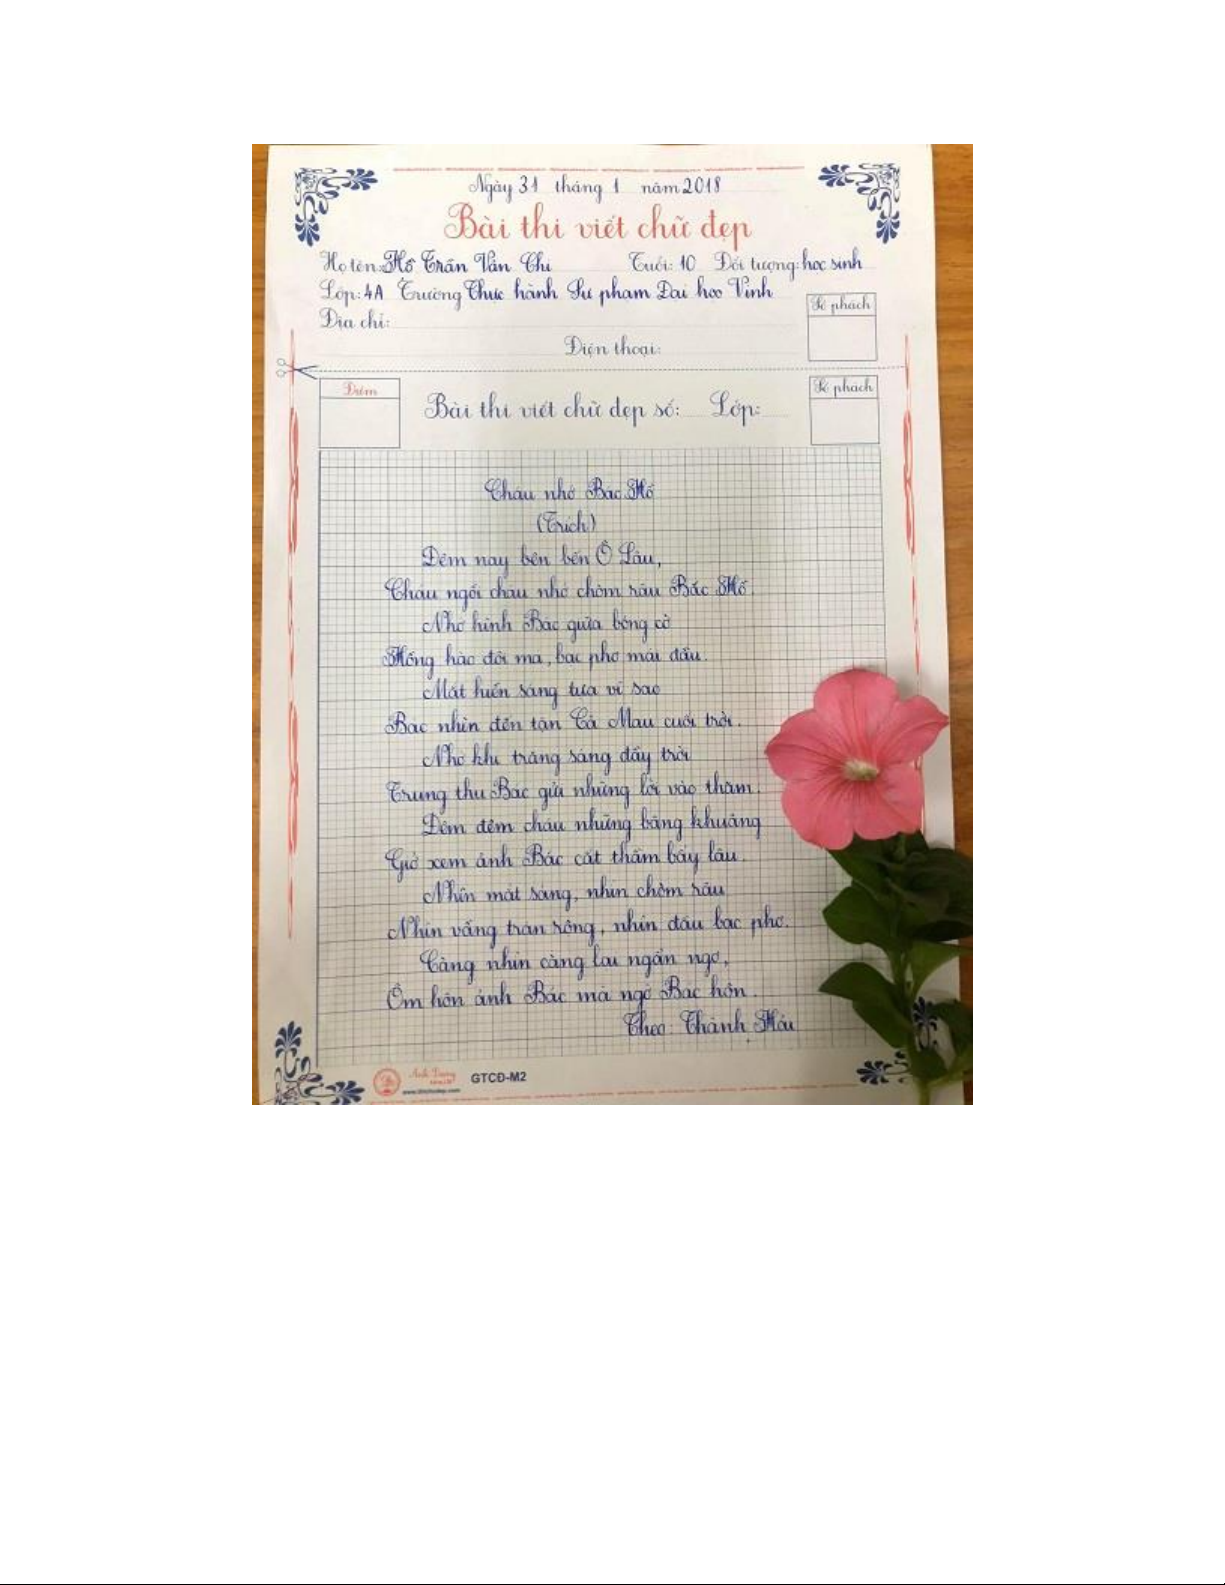 Ngày 31 tháng 1 năm 2018
Bài thi viết chữ đẹp
Họ tên: Hồ Trần Vân Chi Tuổi: 10 Đối tượng: học sinh
Lớp: 4A Trường Thực hành Sư phạm Đại học Vinh
Số phách
Địa chỉ:
Điện thoại:
Điểm
Số phách
Bài thi viết chữ đẹp số: Lớp:
Cháu nhớ Bác Hồ
(Trích)
Đêm nay bên bến Ô Lâu,
Cháu ngồi cháu nhớ chòm râu Bác Hồ.
Nhớ hình Bác giữa bóng cờ
Hồng hào đôi má, bạc phơ mái đầu.
Mắt hiền sáng tựa vì sao
Bác nhìn đến tận Cà Mau cuối trời.
Nhớ khi trăng sáng đầy trời
Trung thu Bác gửi những lời vào thăm.
Đêm đêm cháu những bâng khuâng
Giở xem ảnh Bác cất thầm bấy lâu.
Nhìn mắt sáng, nhìn chòm râu
Nhìn vầng trán rộng, nhìn đầu bạc phơ.
Càng nhìn càng lại ngẩn ngơ,
Ôm hôn ảnh Bác mà ngỡ Bác hôn.
Theo: Thanh Hải
GTCĐ-M2